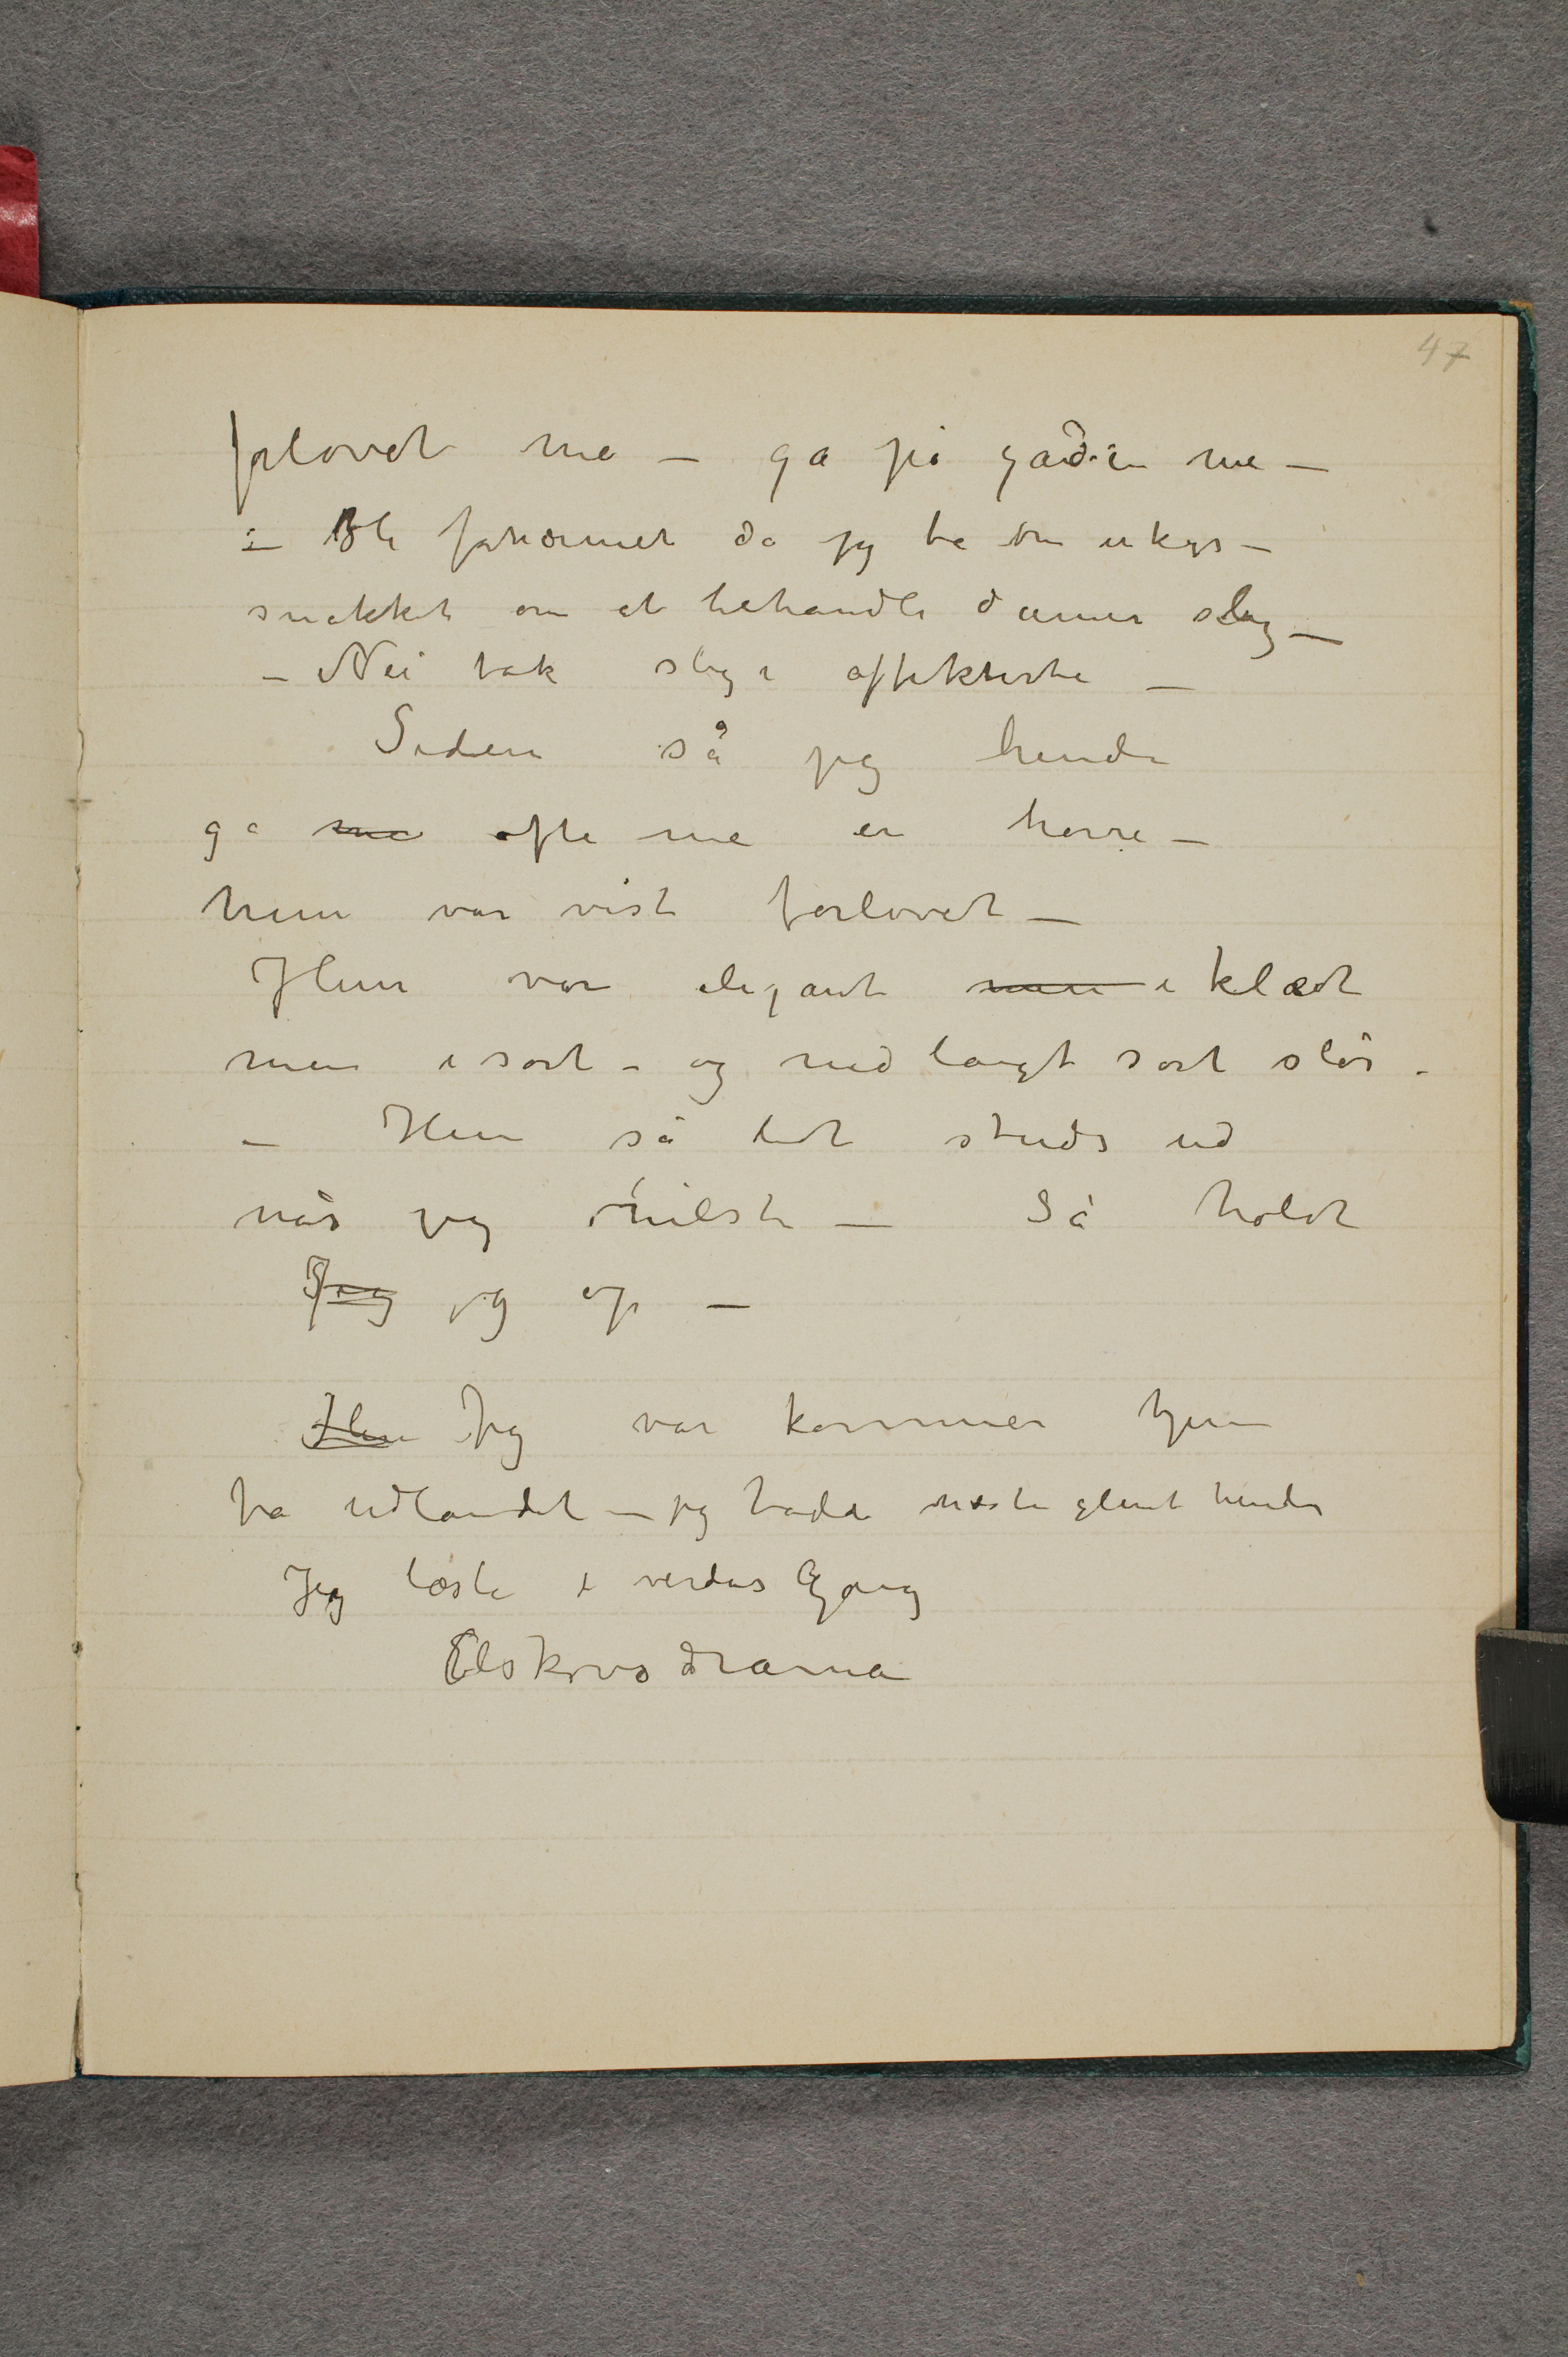 47
forlovet me – gå på gaden me –
– Ble fornærmet da jeg ba om et kys –
snakket om at behandle damer slig –
– Nei tak slige affekterte –
Siden så jeg hende
gå me ofte me en herre –
hun var vist forlovet –
Hun var elegant men iklædt
men i sort – og med langt sort slør –
– Hun så lidt studs ud
når jeg hilste – Så holdt
Jeg jeg op –
Hun Jeg var kommen hjem
fra udlandet – jeg hadde næsten glemt hende
Jeg læste i verdens Gang
Elskovsdrama